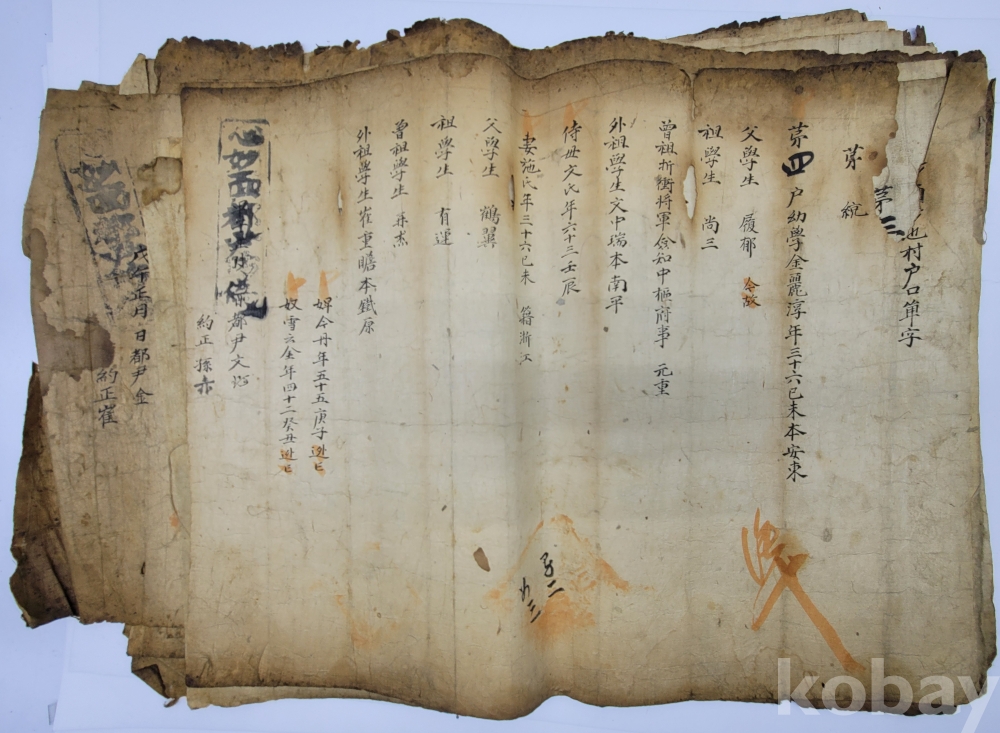 地村戶口單字
第三
第 統
第四戶幼學金麗淳年三十六己未本安東
父學生 履郁 今故
祖學生 尚三
曾祖折衝將軍僉知中樞府事 元重
外祖學生文中瑞本南平
侍母文氏年六十三壬辰
妻施氏年三十六己未 籍浙江
父學生 鶴翼
祖學生 有運
曾祖學生
外祖學生崔重瞻本鐵原
婢今丹年五十五庚子逃亡
奴雪云金年四十二癸丑逃亡
都尹文
約正 孫
男二
女三
戊午正月 日都尹金
約正崔
kobay